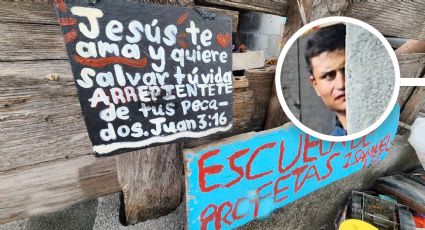 Jesús te
ama y quiere
salvar tú vida
ARREPIENTETE
de tus peca-
dos. Juan 3:16
ESCUELA DE
PROFETAS 2 SAMUEL
PROFE